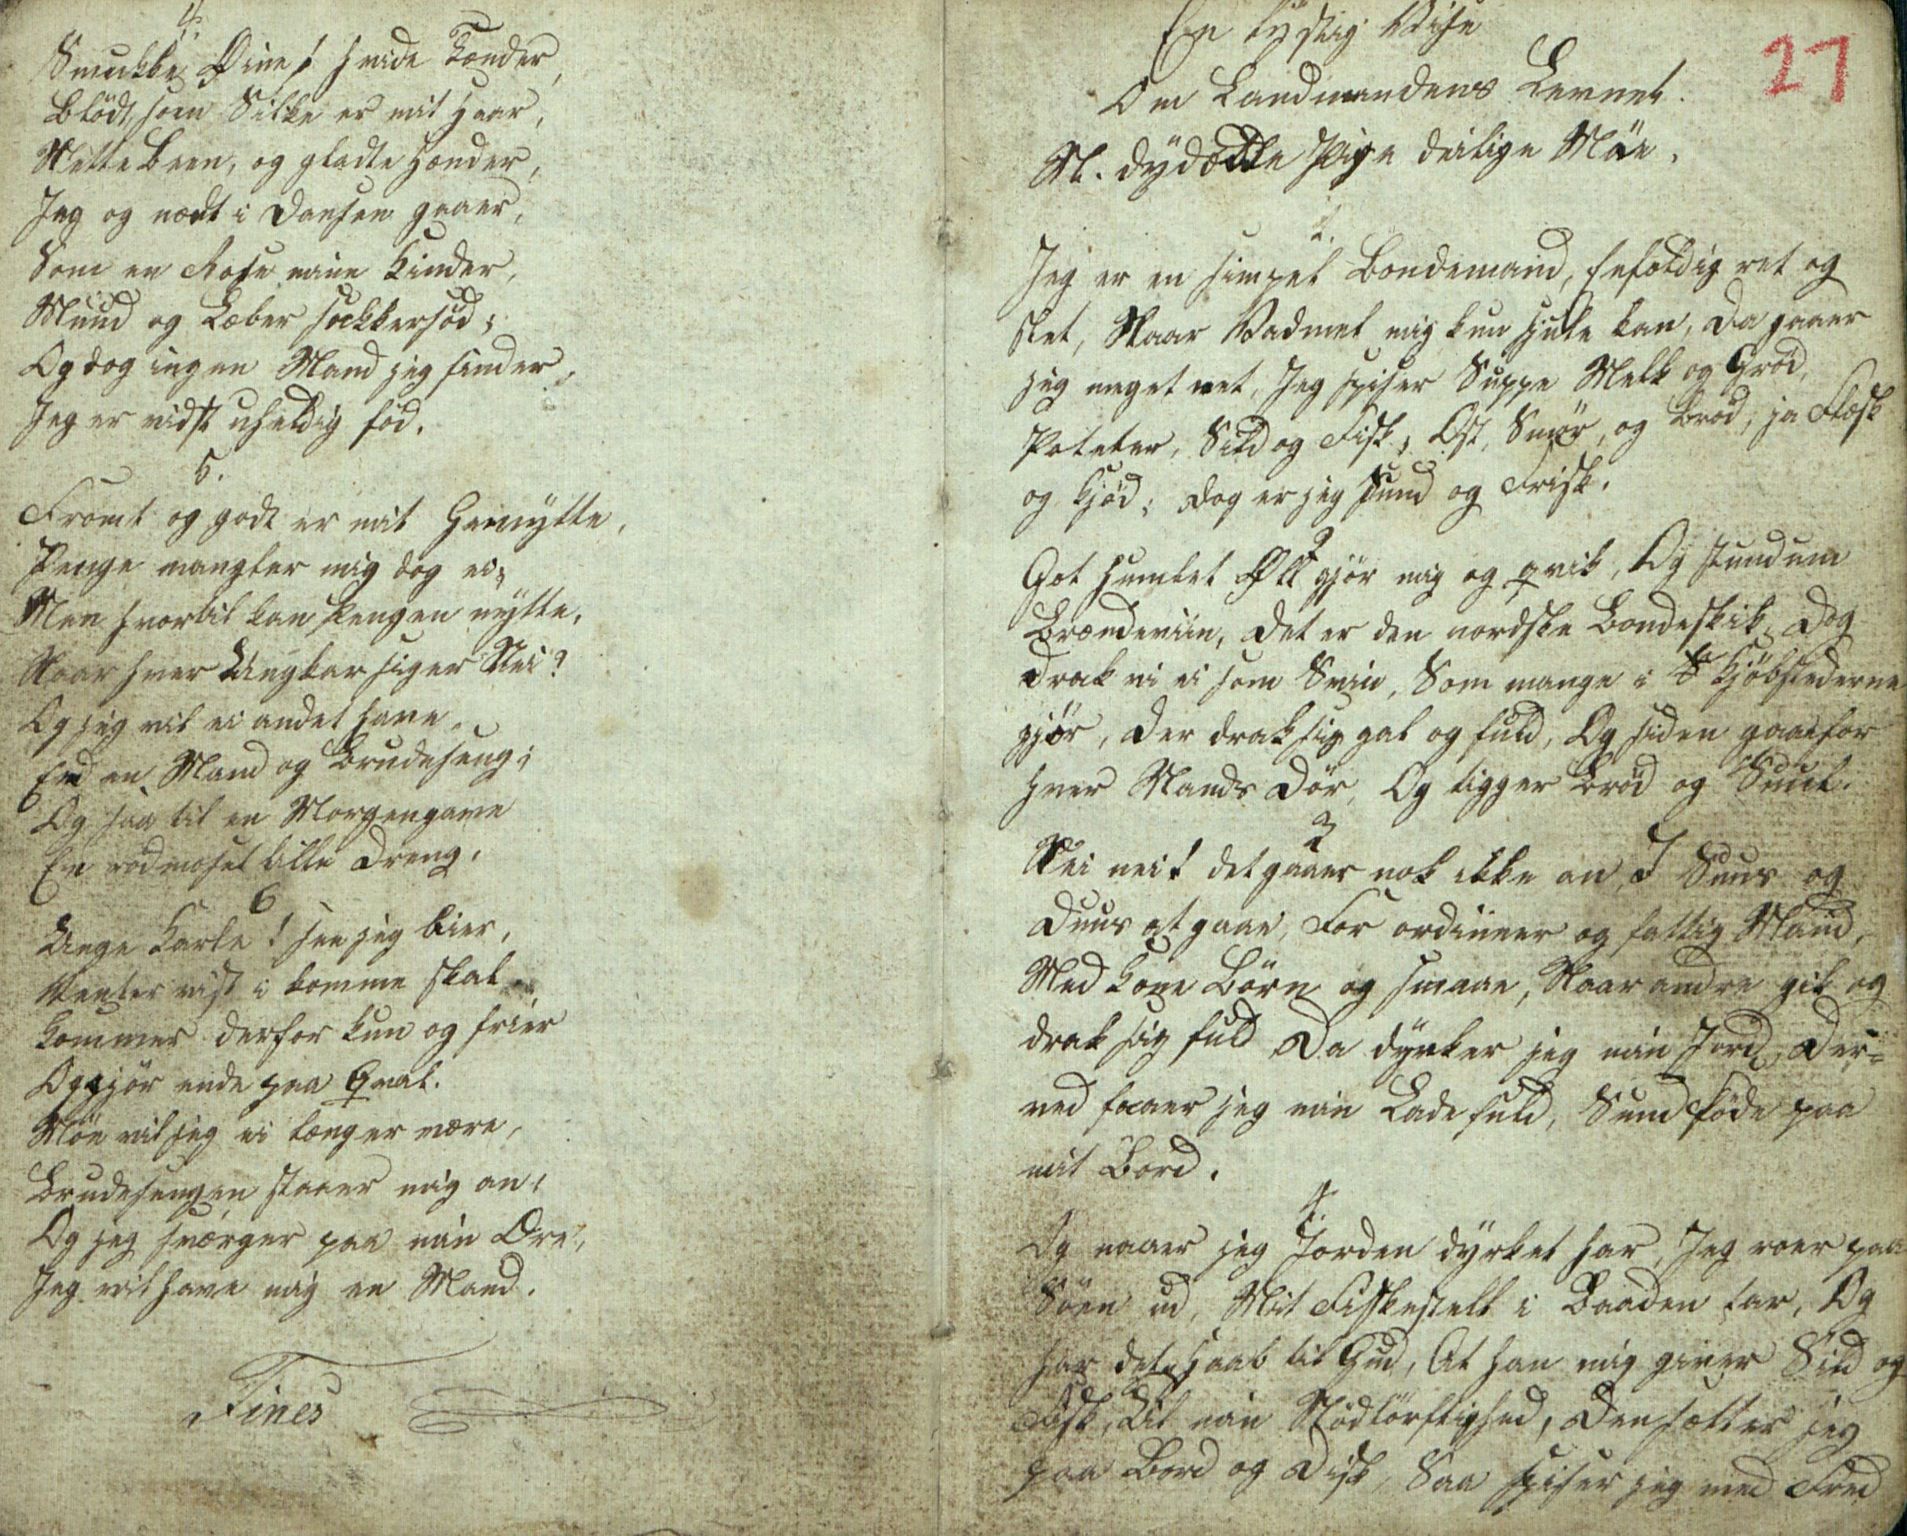 4.
Smukke Øine! hvide Tænder,
Blödt som Silke er mit Haar,
Nette Been, og gladte Hænder,
Jeg og nædt i Dansen gaaer,
Som en Rose mine Kinder,
Mund og Læber sukkersöd;
Og dog ingen Mand jeg finder,
Jeg er vidst uheldig föd.
5.
Fromt og godt er mit Gemytte,
Penge mangler mig dog ei;
Men hvortil kan Pengen nytte,
Naar hver Ungkar siger Nei?
Og jeg vil ei andet have,
End en Mand og Brudeseng;
Og saa til en Morgengave
En rödmoset lille Dreng.
6
Unge Karle! see jeg bier,
Venter vist i komme skal
Kommer derfor kun og frier
Og gjör ende paa Qval.
Möe vil jeg ei længer være,
Brudesengen staaer mig an,
Og jeg sværger paa min Ære,
Jeg vil have mig en Mand.
Fines
En lystig Vise
27
Om Landmandens Levnet.
M. dydædle Pige deilige Möe.
1.
Jeg er en simpel Bondemand, Enfoldig ret og
slet, Naar Vadmel mig kun hjule kan, Da gaaer
jeg meget net, Jeg spiser Suppe Melk og Gröd,
Poteter, Sild og Fisk, Ost, Smör, og Bröd, ja Flesk
og Kjöd; dog er jeg sund og Frisk.
2
Got humlet Øll gjör mig og qvik, Og stundum
Brændeviin, Det er den nordske Bondeskik, Dog
drak vi ei som Sviin, Som mange i Kjöbstederne
gjör, Der drak sig gal og fuld, Og siden gaae for
hver Mands Dör, Og tigger Bröd og Suul.
3
Nei nei! det gaaer nok ikke an, I Suus og
Duus at gaae, For ordineer og fattig Mand,
Med Kone Börn og smaae, Naar andre gik og
drak sig fuld Da dyrker jeg min Jord, Der-
ved faaer jeg min Lade fuld, Sund Föde paa
mit Bord.
4.
Og naaer jeg Jorden dyrket har, Jeg roer paa
Söen ud, Mit Fiskestell i Baaden tar, Og
har det Haab til Gud, At han mig giver Sild og
Fisk, Til min Nödtörftighed, Den sætter jeg
paa Bord og Disk, Saa spiser jeg med Fred